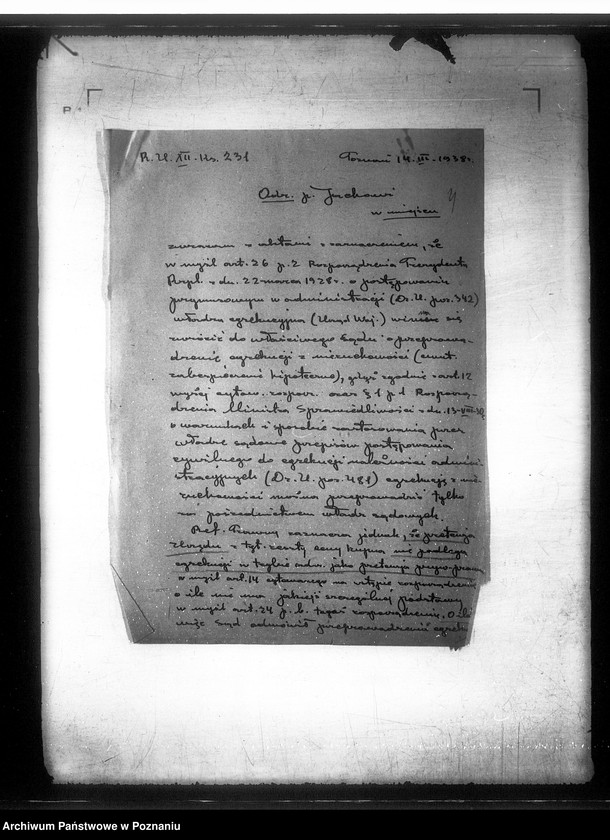 P.
R.U. XII. Ks. 231 Poznań 14.III.1938r.
Odr. p. Juchowi
w miejscu
zwracam z aktami z zaznaczeniem, że
w myśl art. 26 p. 2 Rozporządzenia Prezydenta
Rzpl. z dn. 22 marca 1928r. o postępowaniu
przymusowym w administracji (Dz.U. poz. 342)
władza egzekucyjna (Urząd Woj.) winna się
zwrócić do właściwego Sądu o przeprowa-
dzenie egzekucji z nieruchomości (ewent.
zabezpieczenie hipoteczne), gdyż zgodnie z art. 12
wyżej cytow. rozporz. oraz § 1 p. 1 Rozporzą-
dzenia Ministra Sprawiedliwości z dn. 13.VIII.32
o warunkach i sposobie zastosowania przez
władze sądowe przepisów postępowania
cywilnego do egzekucji należności admini-
stracyjnych (Dz.U. poz. 481) egzekucję z nie-
ruchomości można przeprowadzić tylko
za pośrednictwem władz sądowych.
Ref. Prawny zaznacza jednak, że pretensja
Związku z tyt. reszty ceny kupna nie podlega
egzekucji w trybie adm. jako pretensja prywo-prawna
w myśl art. 14 cytowanego na wstępie rozporządzenia
o ile nie ma jakiejś szczególnej podstawy
w myśl art. 24 p. b. tegoż rozporządzenia. O ile
więc Sąd odmówił przeprowadzenia egzeku
Archiwum Państwowe w Poznaniu